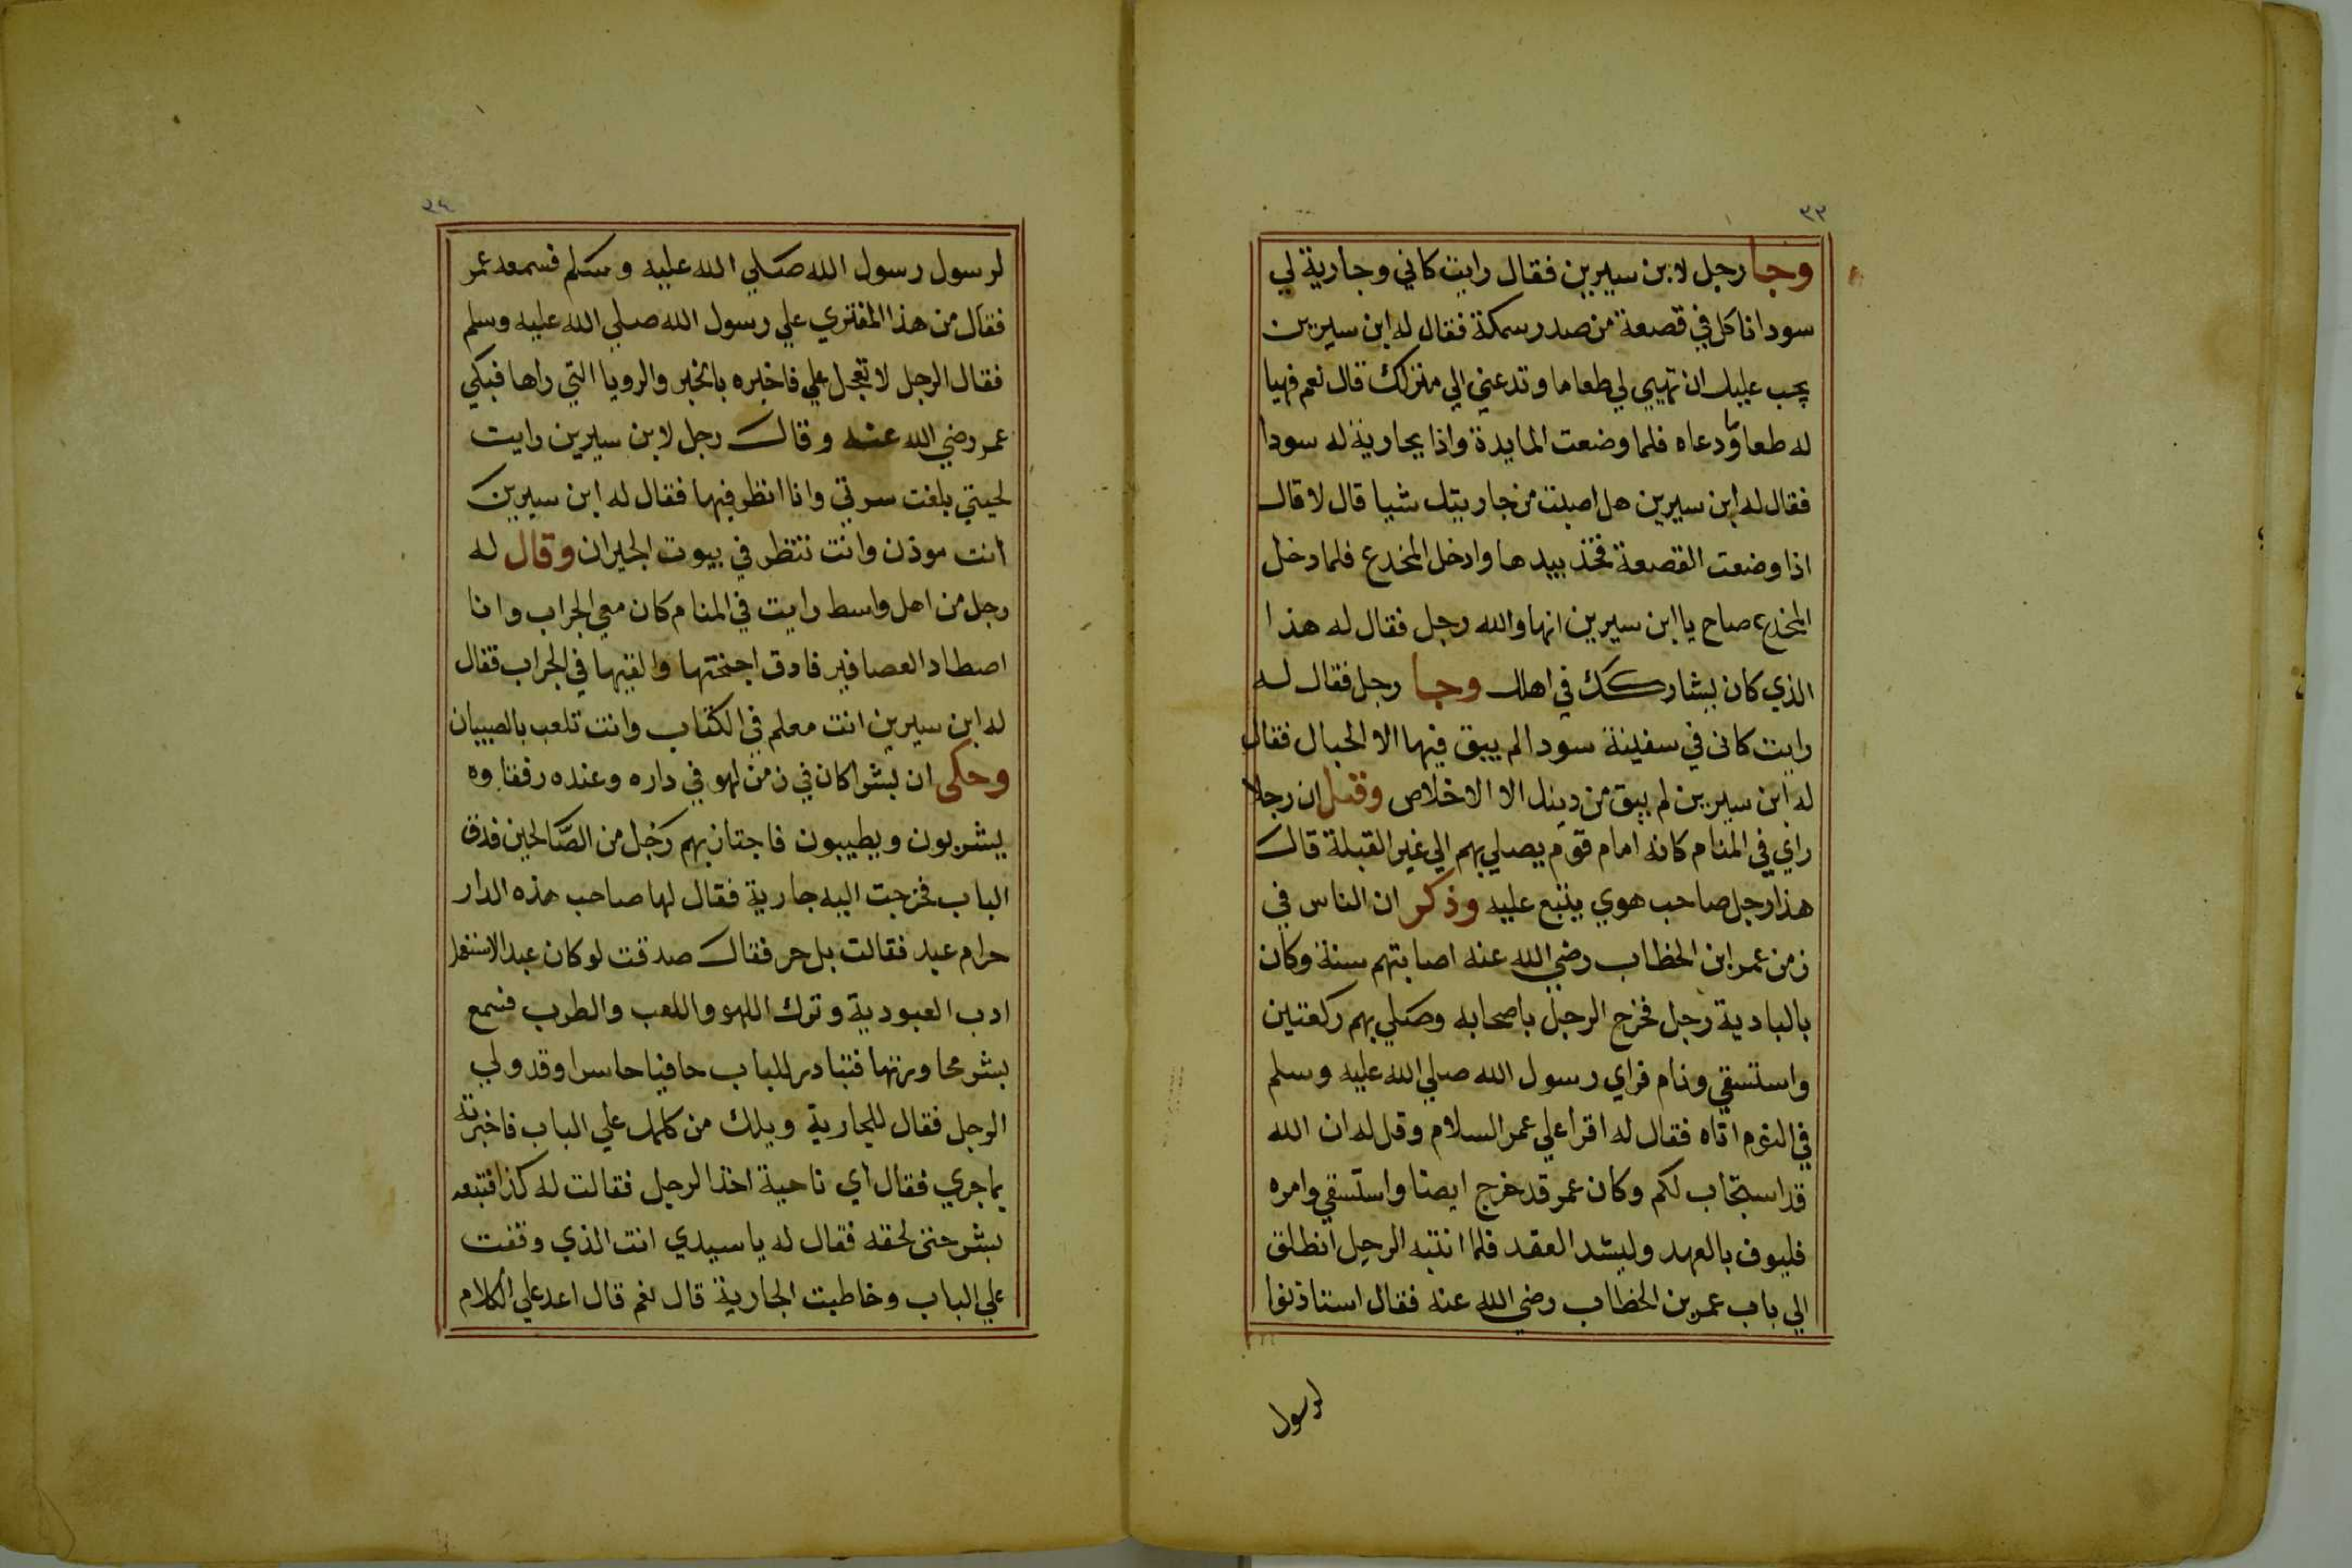 ٣٣
وجا رجل لابن سيرين فقال رايت كاني وجارية لي
سودا ناكل في قصعة من صدر سمكة فقال له ابن سيرين
يجب عليك ان تهيي لي طعاما وتدعني الي منزلك قال نعم فهيا
له طعاما ودعاه فلما وضعت المايدة واذا بجارية له سودا
فقال له ابن سيرين هل اصبت من جاريتك شيا قال لا قال
اذا وضعت القصعة فخذ بيدها وادخل المخدع فلما دخل
المخدع صاح يا ابن سيرين انها والله رجل فقال له هذا
الذي كان يشاركك في اهلك وجا رجل فقال له
رايت كاني في سفينة سودا لم يبق فيها الا الحبال فقال
له ابن سيرين لم يبق من دينك الا الاخلاص وقيل ان رجلا
راي في المنام كانه امام قوم يصلي بهم الي غير القبلة قال
هذا رجل صاحب هوي يتبع عليه وذكر ان الناس في
زمن عمر ابن الخطاب رضي الله عنه اصابتهم سنة وكان
بالبادية رجل فخرج الرجل باصحابه وصلي بهم ركعتين
واستسقي ونام فراي رسول الله صلي الله عليه وسلم
في النوم اتاه فقال له اقرا علي عمر السلام وقل له ان الله
قد استجاب لكم وكان عمر قد خرج ايضا واستسقي وامره
فليوف بالعهد وليشد العقد فلما انتبه الرجل انطلق
الي باب عمر بن الخطاب رضي الله عنه فقال استاذنوا
لرسول
٣٤
لرسول رسول الله صلي الله عليه وسلم فسمعه عمر
فقال من هذا المفتري علي رسول الله صلي الله عليه وسلم
فقال الرجل لا تعجل علي فاخبره بالخبر والرويا التي راها فبكي
عمر رضي الله عنه وقال رجل لابن سيرين رايت
لحيتي بلغت سرتي وانا انظر فيها فقال له ابن سيرين
انت موذن وانت تنظر في بيوت الجيران وقال له
رجل من اهل واسط رايت في المنام كان معي الجراب وانا
اصطاد العصافير فادق اجنحتها والقيها في الجراب فقال
له ابن سيرين انت معلم في الكتاب وانت تلعب بالصبيان
وحكى ان بشرا كان في زمن لهو في داره وعنده رفقاوه
يشربون ويطيبون فاجتاز بهم رجل من الصالحين فدق
الباب فخرجت اليه جارية فقال لها صاحب هذه الدار
حرام عبد فقالت بل حر فقال صدقت لو كان عبدا لاستعمل
ادب العبودية وترك اللهو واللعب والطرب فسمع
بشر محاورتها فتبادر للباب حافيا حاسرا وقد ولي
الرجل فقال للجارية ويلك من كلمك علي الباب فاخبرته
بما جري فقال اي ناحية اخذ الرجل فقالت له كذا فتبعه
بشر حتى لحقه فقال له يا سيدي انت الذي وقفت
علي الباب وخاطبت الجارية قال نعم قال اعد علي الكلام